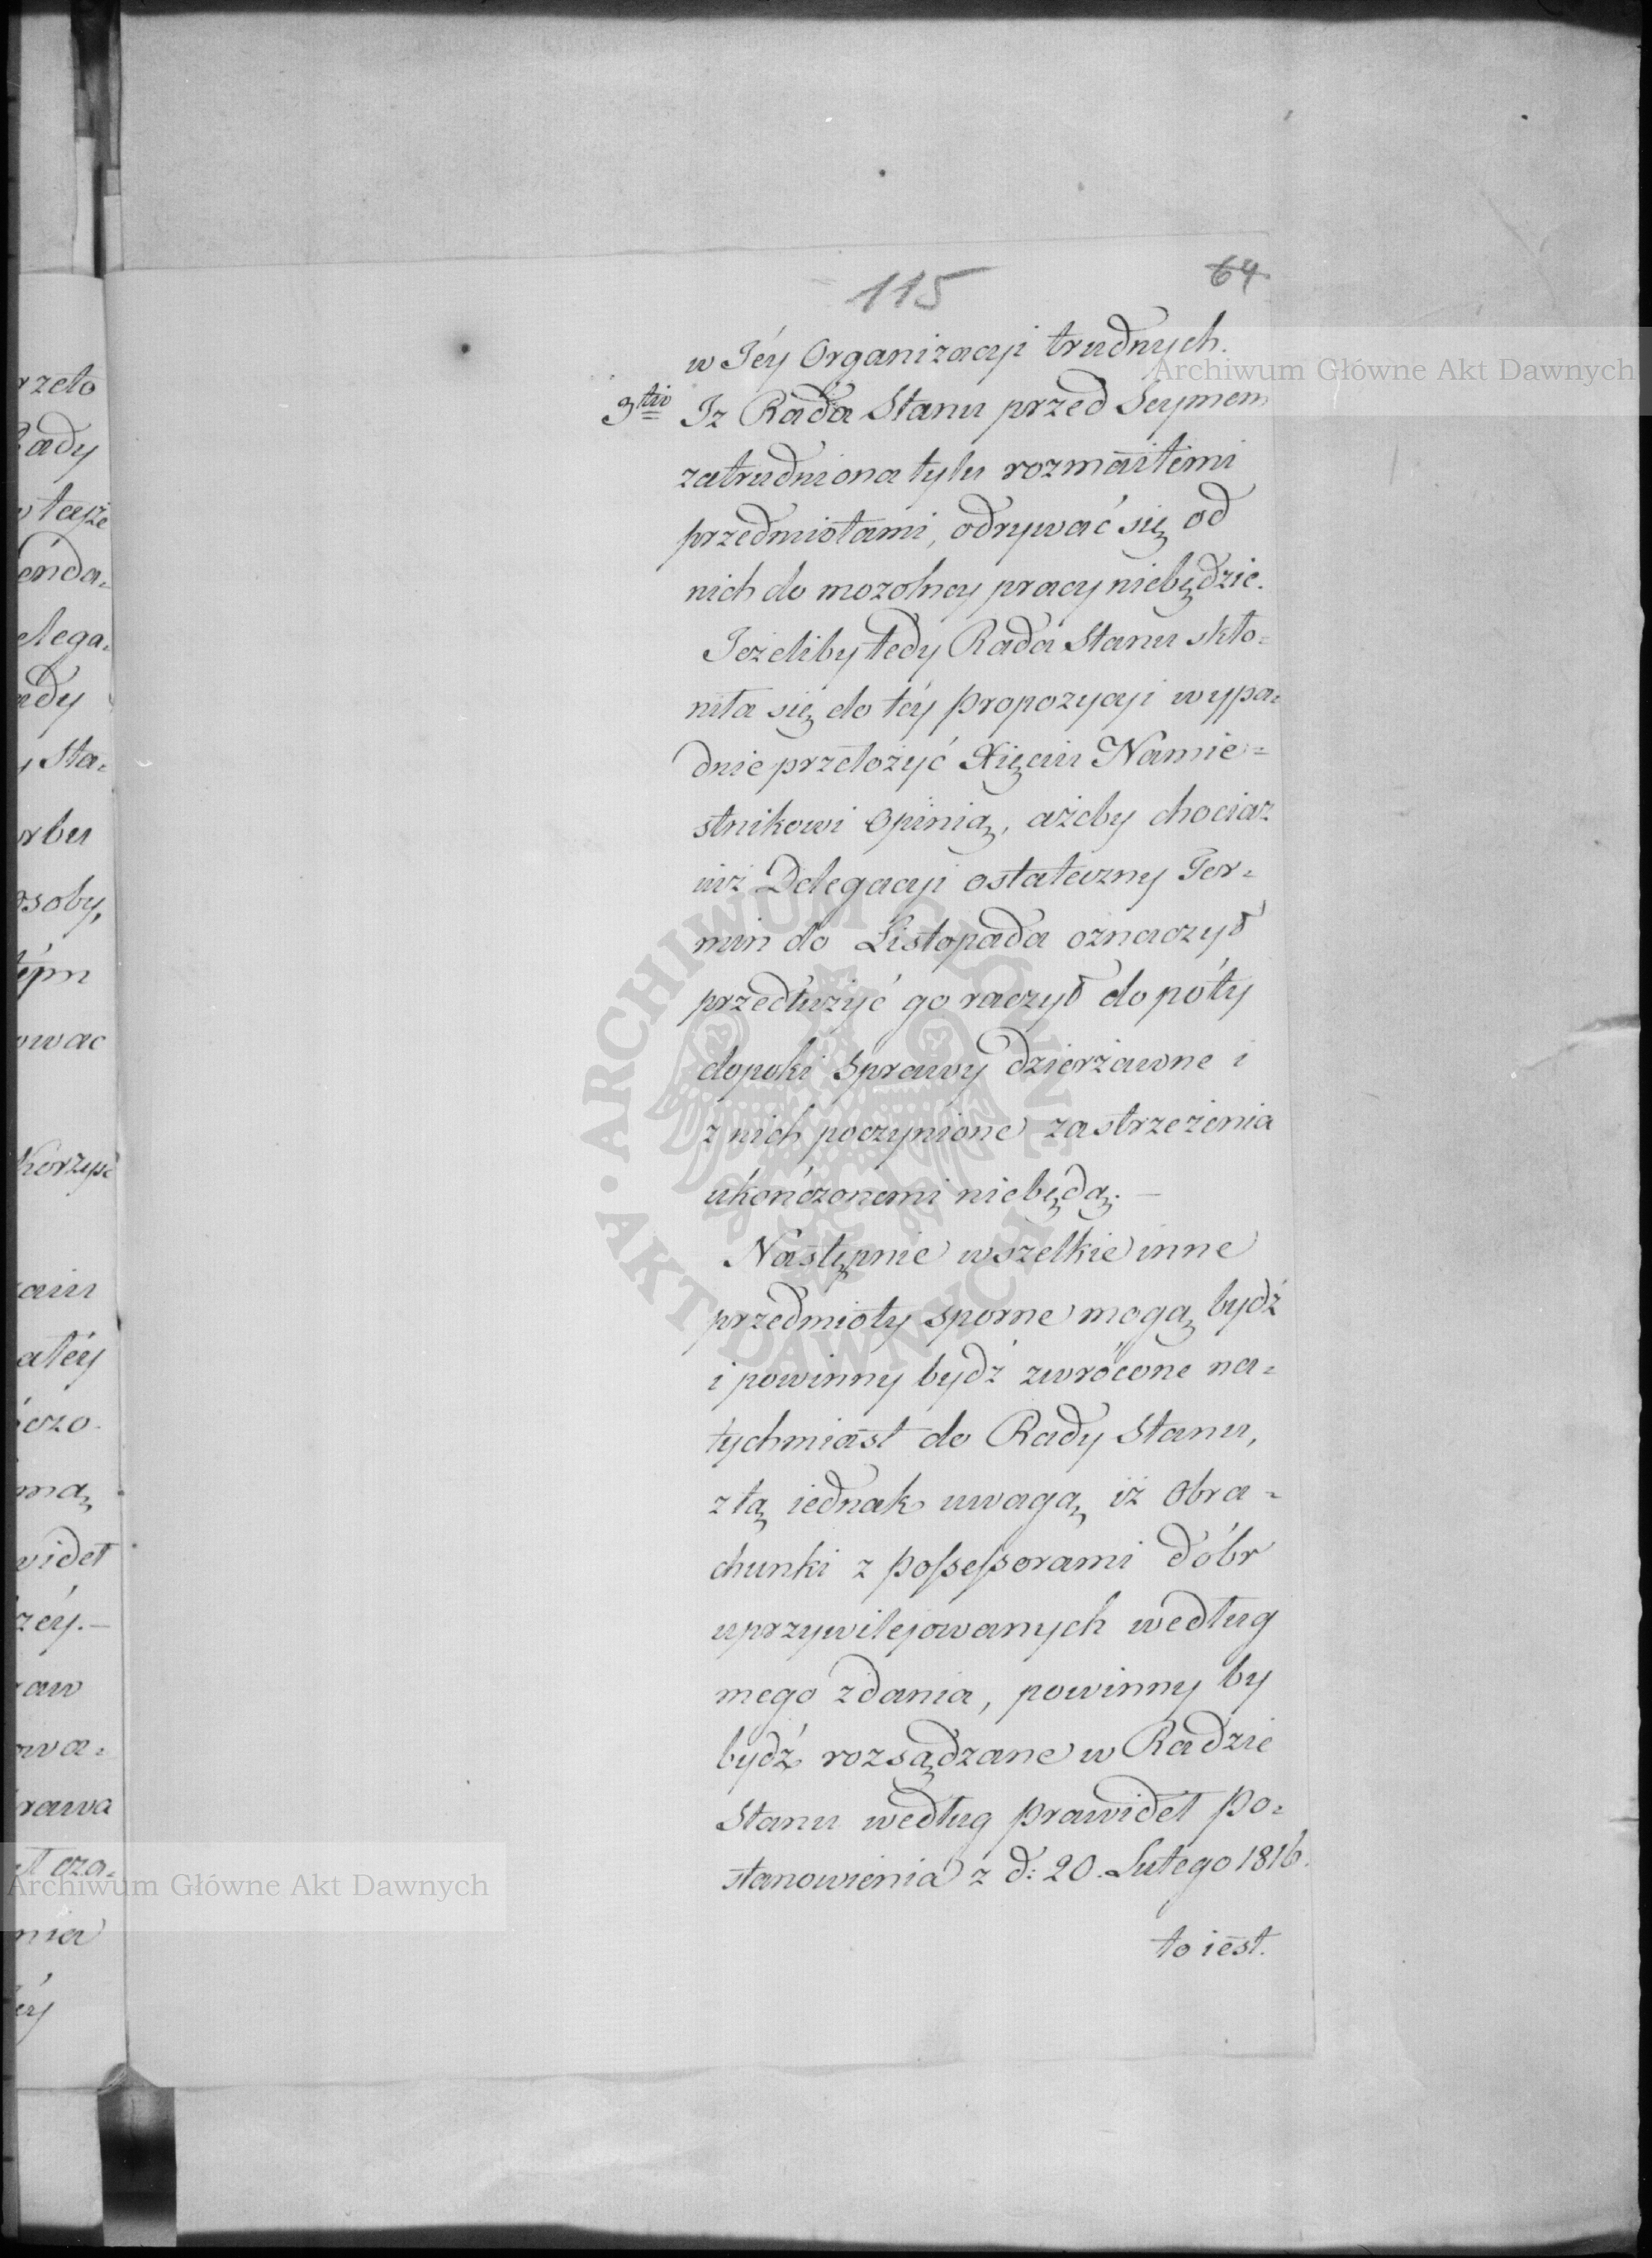 115
64
w Jéy Organizacyi trudnych.
3tio Iz Rada Stanu przed Seymem
zatrudniona tylu rozmaitemi
przedmiotami, odrywać się od
nich do mozolney pracy niebędzie.
Jeżeliby tedy Rada Stanu skło=
niła się do téy propozycyi wypa=
dnie przełożyć Xięciu Namie=
stnikowi opinią, ażeby chociaz
iuż Delegacyi ostateczny Ter=
min do Listopada oznaczył
przedłużyć go raczył dopóty
dopoki sprawy dzierżawne i
z nich poczynione zastrzeżenia
ukończonemi niebędą. —
Następnie wszelkie inne
przedmioty sporne mogą bydź
i powinny bydź zwrócone na=
tychmiast do Rady Stanu,
z tą iednak uwagą iż Obra=
chunki z possessorami dóbr
uprzywilejowanych według
mego zdania, powinny by
bydź rozsądzane w Radzie
Stanu według prawideł po=
stanowienia z d: 20. Lutego 1816.
to iest.
rzeto
Rady
w tayże
enda=
elega=
ady
y Sta=
osoby,
korzyść
atéy
widet
zéy. —
awa=
rawa
nia
Archiwum Główne Akt Dawnych
Archiwum Główne Akt Dawnych
ARCHIWUM GŁÓWNE AKT DAWNYCH